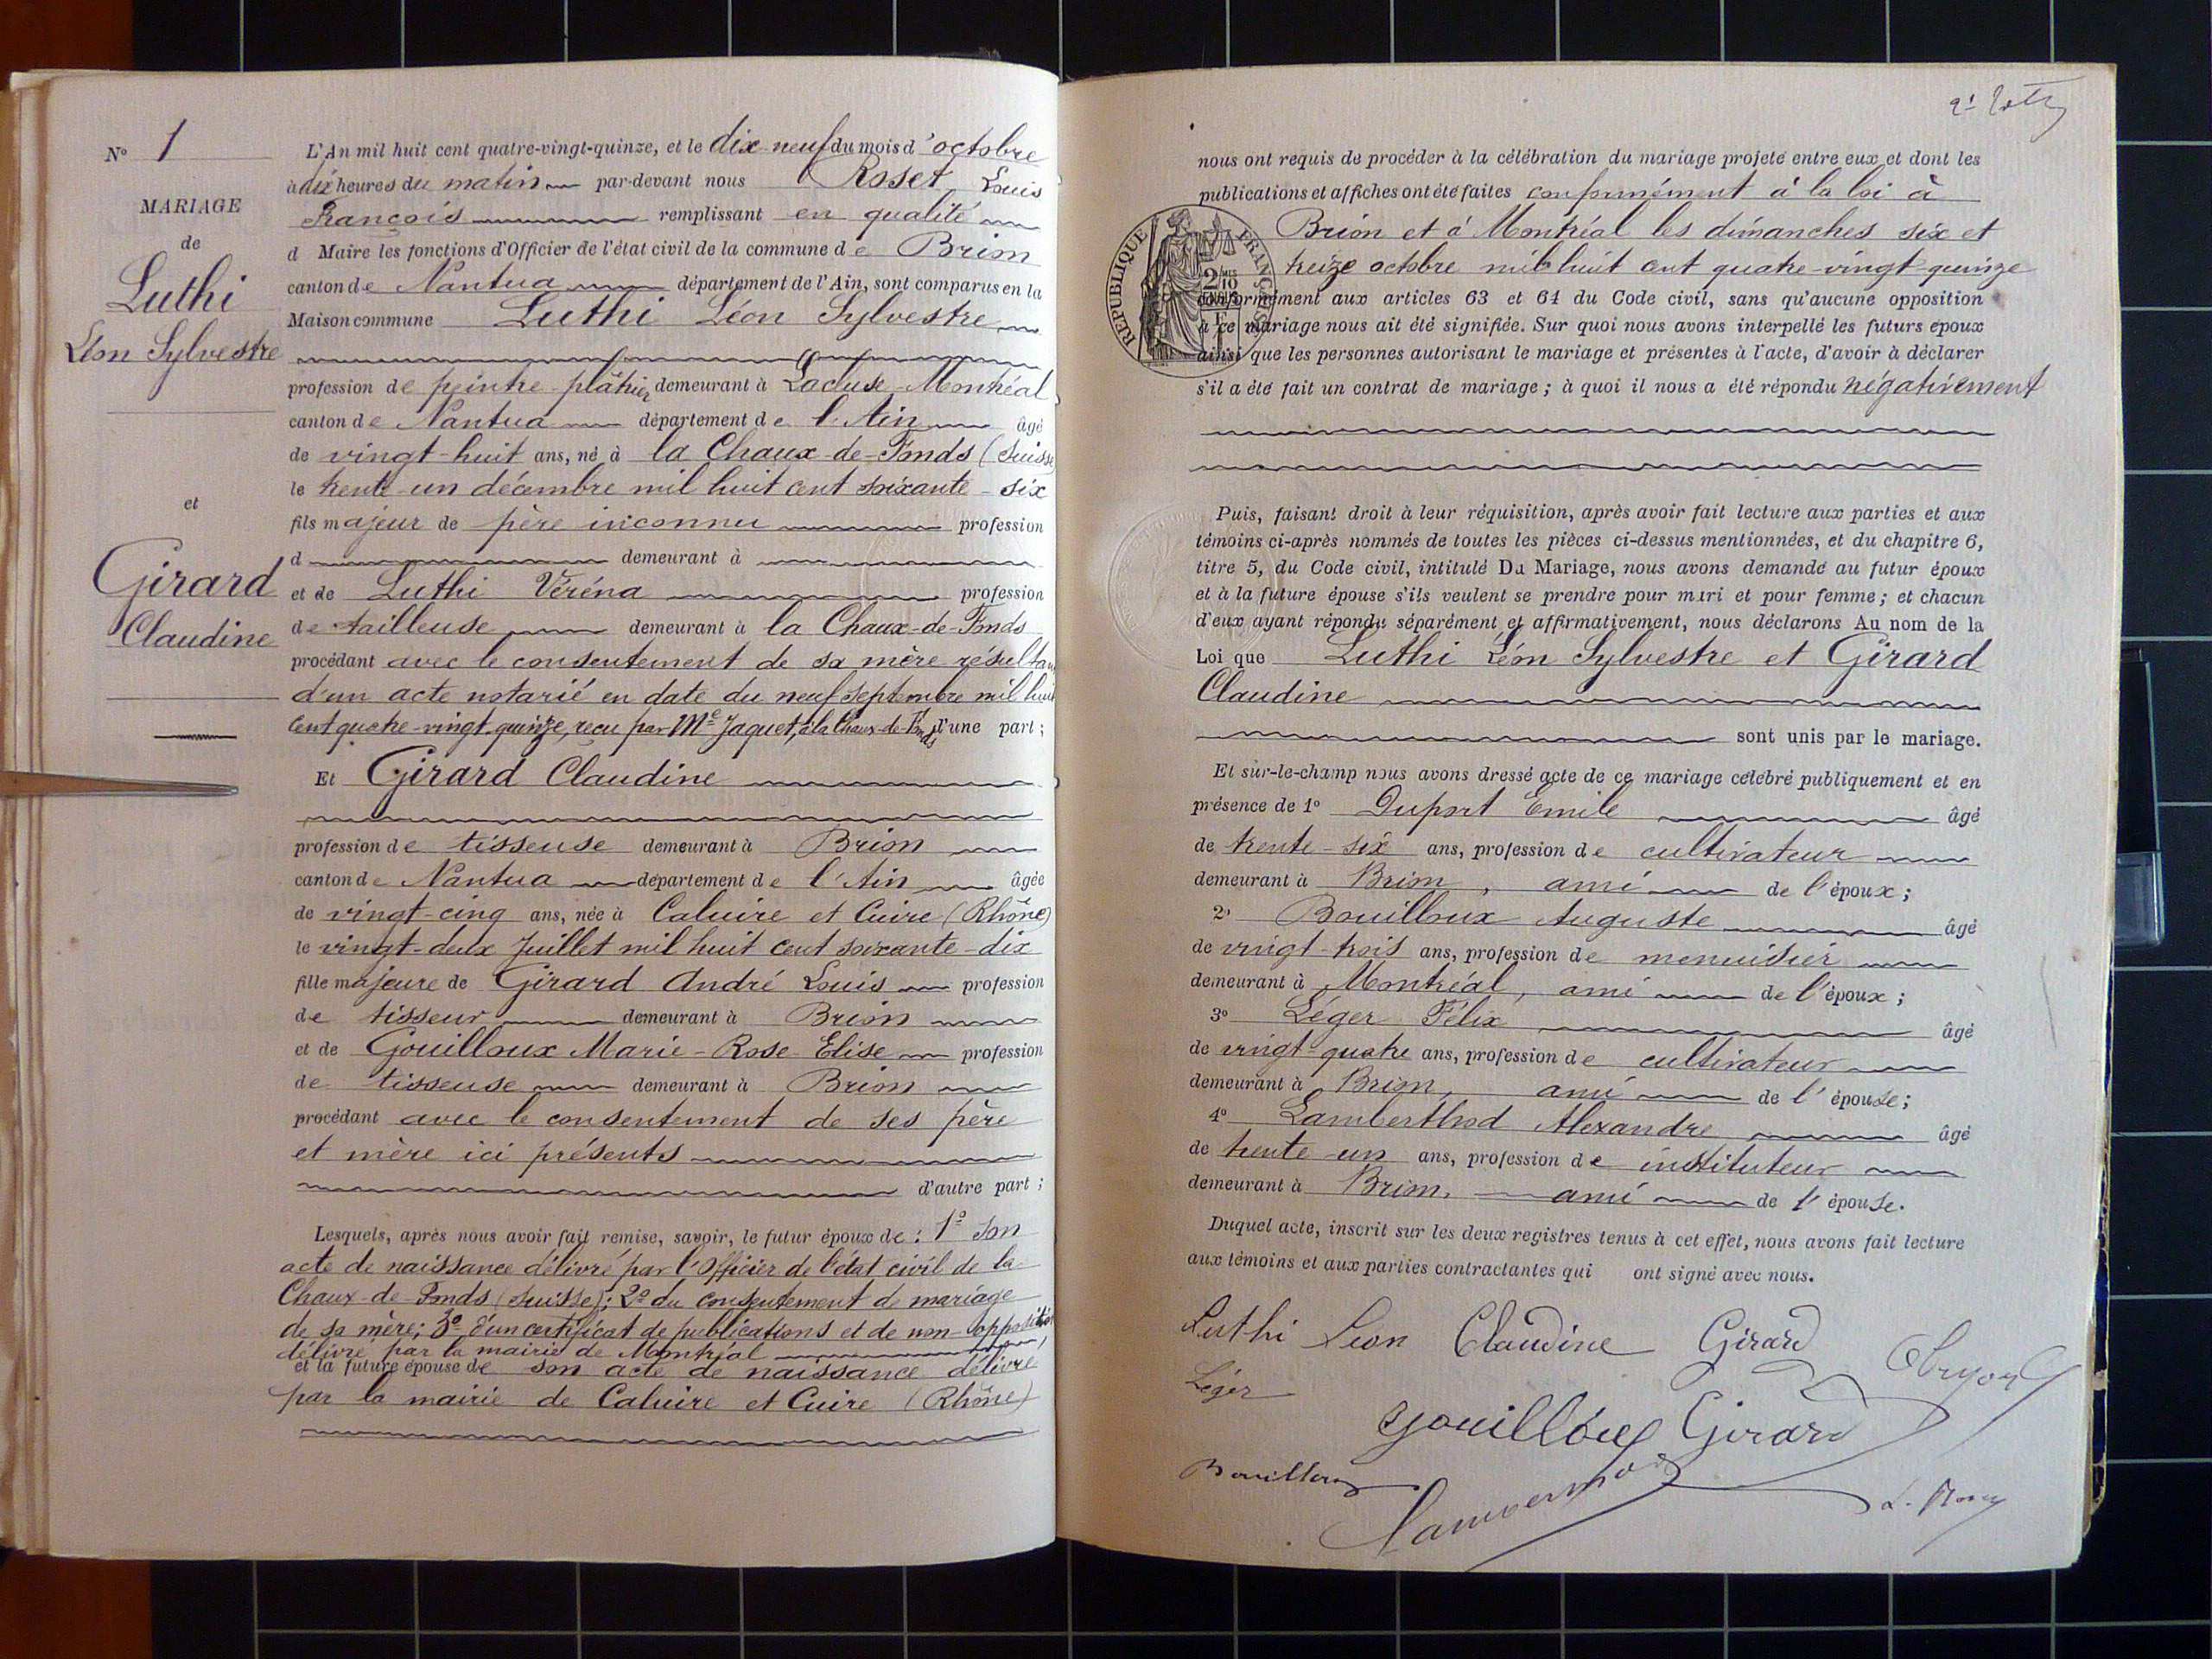 N° 1
MARIAGE
de
Luthi
Léon Sylvestre
et
Girard
Claudine
L'An mil huit cent quatre-vingt-quinze, et le dix-neuf du mois d'octobre
à dix heures du matin par-devant nous Roset Louis
François remplissant en qualité
d Maire les fonctions d'Officier de l'état civil de la commune de Brion
canton de Nantua département de l'Ain, sont comparus en la
Maison commune Luthi Léon Sylvestre
profession de peintre-plâtrier demeurant à Lacluse-Montréal
canton de Nantua département de l'Ain âgé
de vingt-huit ans, né à la Chaux-de-Fonds (Suisse
le trente-un décembre mil huit cent soixante-six
fils majeur de père inconnu profession
d demeurant à
et de Luthi Véréna profession
de tailleuse demeurant à la Chaux-de-Fonds
procédant avec le consentement de sa mère résultant
d'un acte notarié en date du neuf septembre mil huit
cent quatre-vingt-quinze, reçu par Me Jaquet, à la Chaux-de-Fonds d'une part ;
Et Girard Claudine
profession de tisseuse demeurant à Brion
canton de Nantua département de l'Ain âgée
de vingt-cinq ans, née à Caluire et Cuire (Rhône)
le vingt-deux Juillet mil huit cent soixante-dix
fille majeure de Girard André Louis profession
de tisseur demeurant à Brion
et de Gouilloux Marie-Rose-Elise profession
de tisseuse demeurant à Brion
procédant avec le consentement de ses père
et mère ici présents
d'autre part ;
Lesquels, après nous avoir fait remise, savoir, le futur époux de : 1° son
acte de naissance délivré par l'Officier de l'état civil de la
Chaux-de-Fonds (Suisse); 2° du consentement de mariage
de sa mère; 3° d'un certificat de publications et de non-opposition
délivré par la mairie de Montréal
et la future épouse de son acte de naissance délivré
par la mairie de Caluire et Cuire (Rhône)
nous ont requis de procéder à la célébration du mariage projeté entre eux et dont les
publications et affiches ont été faites conformément à la loi à
Brion et à Montréal les dimanches six et
treize octobre mil huit cent quatre-vingt-quinze
RÉPUBLIQUE FRANÇAISE
conformément aux articles 63 et 64 du Code civil, sans qu'aucune opposition
à ce mariage nous ait été signifiée. Sur quoi nous avons interpellé les futurs époux
ainsi que les personnes autorisant le mariage et présentes à l'acte, d'avoir à déclarer
s'il a été fait un contrat de mariage ; à quoi il nous a été répondu négativement
Puis, faisant droit à leur réquisition, après avoir fait lecture aux parties et aux
témoins ci-après nommés de toutes les pièces ci-dessus mentionnées, et du chapitre 6,
titre 5, du Code civil, intitulé Du Mariage, nous avons demandé au futur époux
et à la future épouse s'ils veulent se prendre pour mari et pour femme ; et chacun
d'eux ayant répondu séparément et affirmativement, nous déclarons Au nom de la
Loi que Luthi Léon Sylvestre et Girard
Claudine
sont unis par le mariage.
Et sur-le-champ nous avons dressé acte de ce mariage célébré publiquement et en
présence de 1° Duport Emile âgé
de trente-six ans, profession de cultivateur
demeurant à Brion, ami de l'époux ;
2° Bouilloux Auguste âgé
de vingt-trois ans, profession de menuisier
demeurant à Montréal, ami de l'époux ;
3° Léger Félix âgé
de vingt-quatre ans, profession de cultivateur
demeurant à Brion, ami de l'épouse ;
4° Lamberthod Alexandre âgé
de trente-un ans, profession de instituteur
demeurant à Brion, ami de l'épouse.
Duquel acte, inscrit sur les deux registres tenus à cet effet, nous avons fait lecture
aux témoins et aux parties contractantes qui ont signé avec nous.
Luthi Léon Claudine Girard
Léger
Gouilloux Girard
Bouilloux